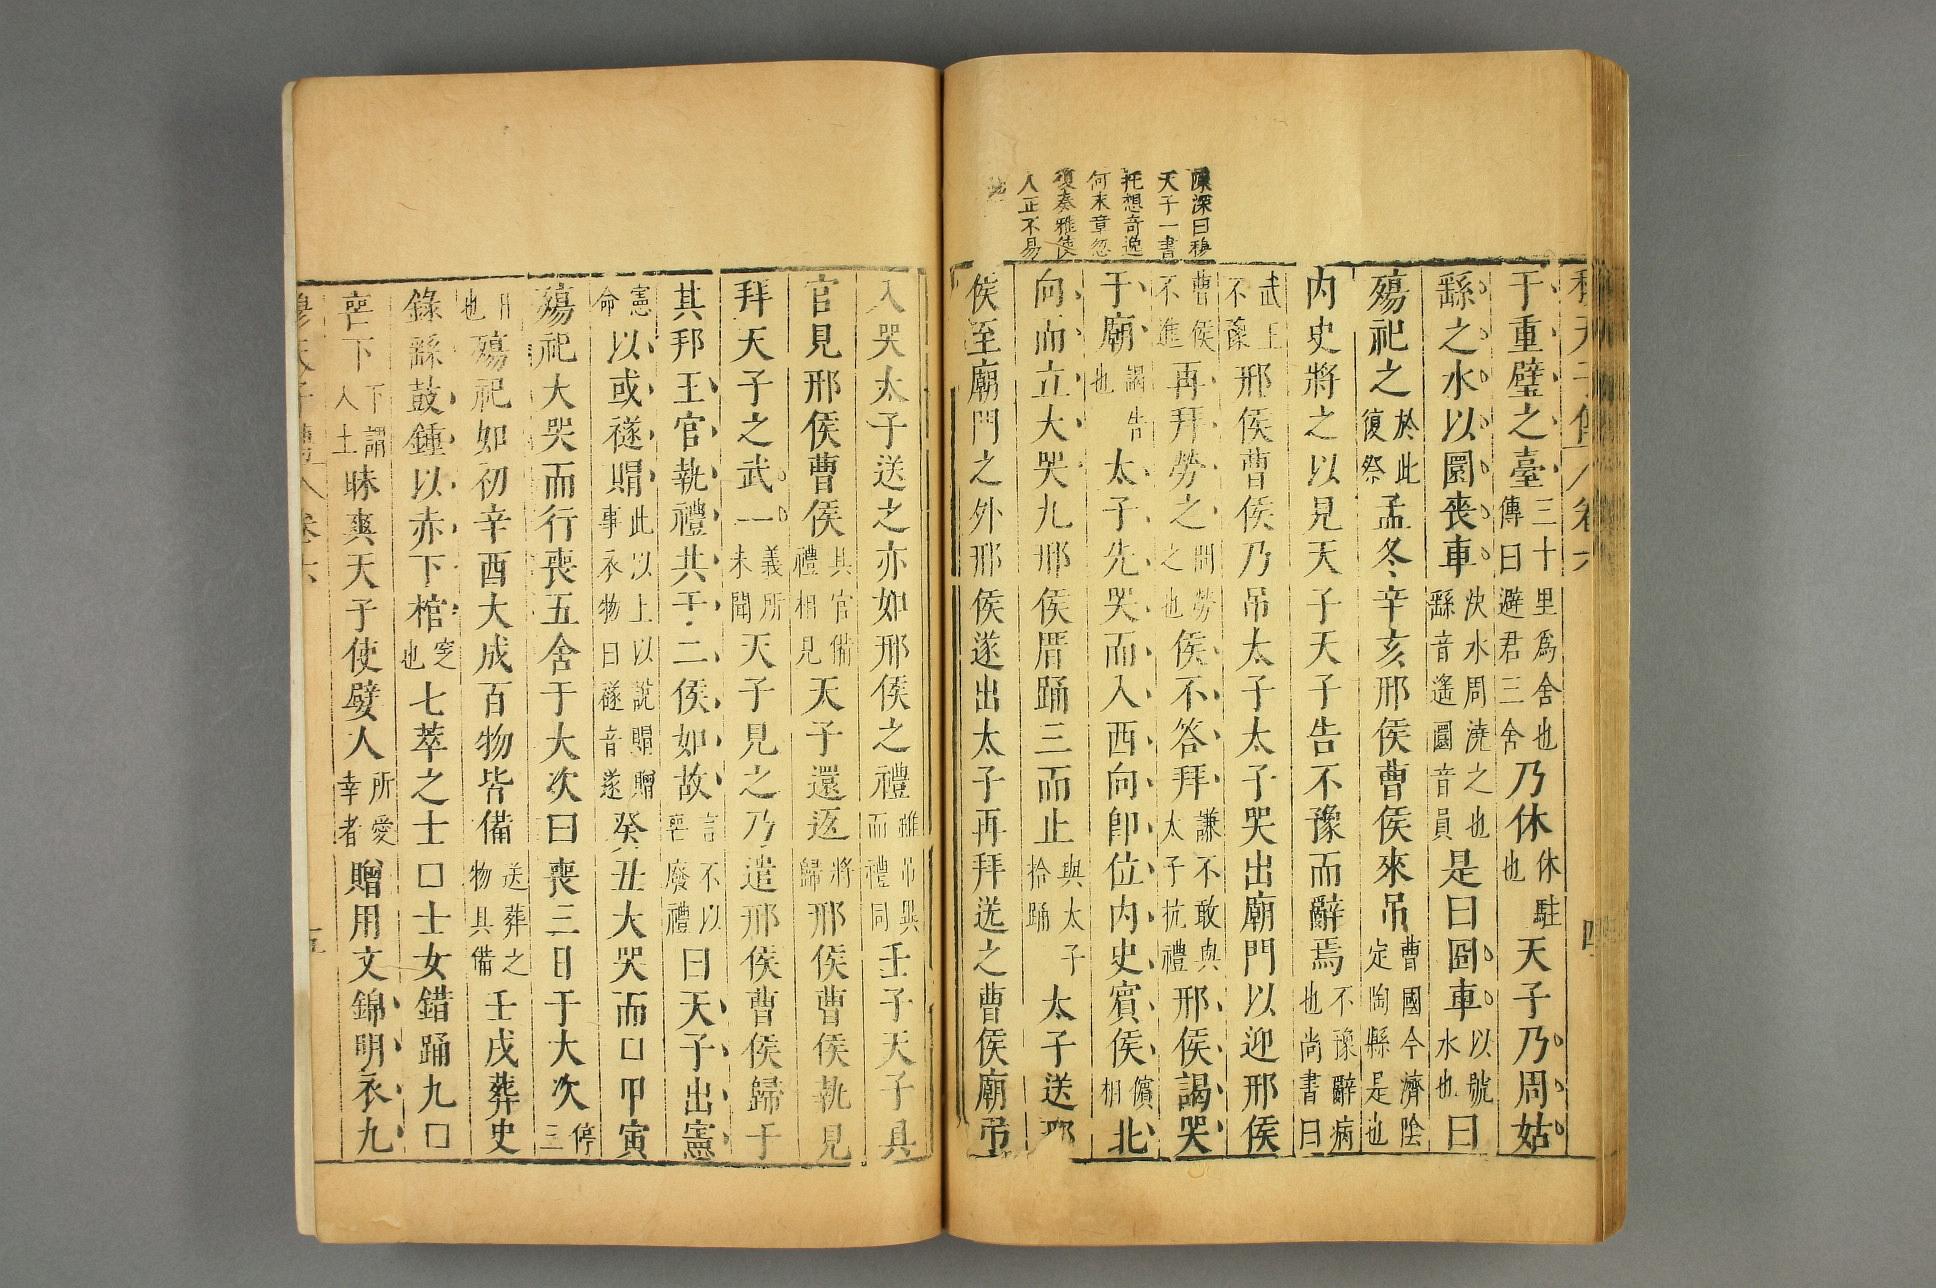 陳深曰穆
天子一書
托想奇逸
何末章忽
復奏雅使
人正不易
于重璧之臺三十里爲舍也傳曰避君三舍乃休休駐也天子乃周姑
繇之水以圜喪車泱水周澆之也繇音遙圜音員是曰囧車以號水也曰
殤祀之於此復祭孟冬辛亥邢侯曹侯來吊曹國今濟陰定陶縣是也
内史將之以見天子天子告不豫而辭焉不豫辭病也尚書曰
武王不豫邢侯曹侯乃吊太子太子哭出廟門以迎邢侯
曹侯不進再拜勞之問勞之也侯不答拜謙不敢與太子抗禮邢侯謁哭
于廟謁告也太子先哭而入西向即位内史賓侯儐相北
向而立大哭九邢侯厝踊三而止與太子拾踊太子送邢
侯至廟門之外邢侯遂出太子再拜送之曹侯廟吊
入哭太子送之亦如邢侯之禮雖吊與而禮同壬子天子具
官見邢侯曹侯具官備禮相見天子還返將歸邢侯曹侯執見
拜天子之武一義所未聞天子見之乃遣邢侯曹侯歸于
其邦王官執禮共于二侯如故言不以喪廢禮曰天子出憲
憲命以或襚賵此以上以說賵贈事衣物曰襚音遂癸丑大哭而口甲寅
殤祀大哭而行喪五舍于大次曰喪三日于大次停三
日也殤祀如初辛酉大成百物皆備送葬之物具備壬戌葬史
錄繇鼓鍾以赤下棺窆也七萃之士口士女錯踊九口
喪下下謂入土昧爽天子使嬖人所愛幸者贈用文錦明衣九